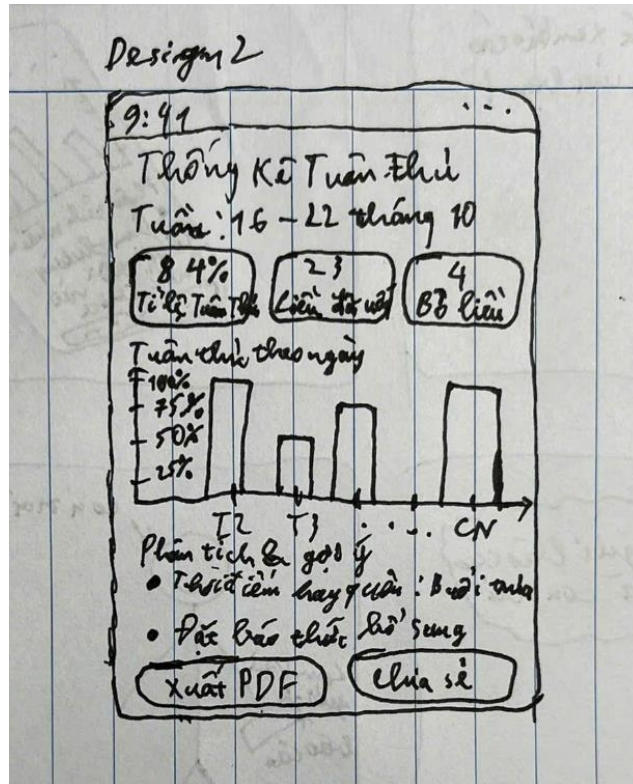 Design 2
9:41 ...
Thống Kê Tuân Thủ
Tuần: 16 - 22 tháng 10
84% 23 4
Tỉ lệ Tuân Thủ Liều đã uống Bỏ liều
Tuân thủ theo ngày
100%
75%
50%
25%
T2 T3 .... CN
Phân tích & gợi ý
• Thời điểm hay quên: Buổi trưa
• Đặt báo thức bổ sung
Xuất PDF Chia sẻ